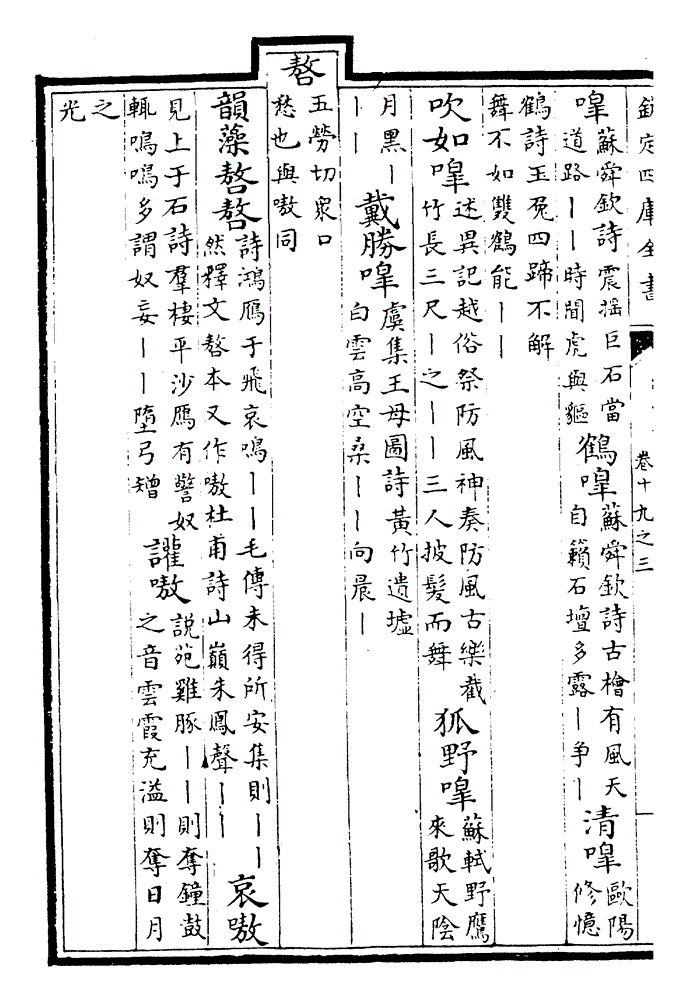 欽定四庫全書
卷十九之三
嘷 蘇舜欽詩震揺巨石當
道路丨丨時間虎與貙
鶴嘷 蘇舜欽詩古檜有風天
自籟石壇多露丨争丨
清嘷 歐陽
修憶
鶴詩玉兎四蹄不解
舞不如雙鶴能丨丨
吹如嘷 述異記越俗祭防風神奏防風古樂截
竹長三尺丨之丨丨三人披髮而舞
狐野嘷 蘇軾野鷹
來歌天陰
月黒丨
丨丨
戴勝嘷 虞集王母圖詩黄竹遺墟
白雲高空桑丨丨向晨丨
嗸
五勞切衆口
愁也與嗷同
韻藻嗸嗸 詩鴻鴈于飛哀鳴丨丨毛傳未得所安集則丨丨
然釋文嗸本又作嗷杜甫詩山巔朱鳳聲丨丨
哀嗷
見上于石詩羣棲平沙鴈有警奴
輒鳴鳴多謂奴妄丨丨墮弓矰
讙嗷 説苑雞豚丨丨則奪鐘鼓
之音雲霞充溢則奪日月
之
光